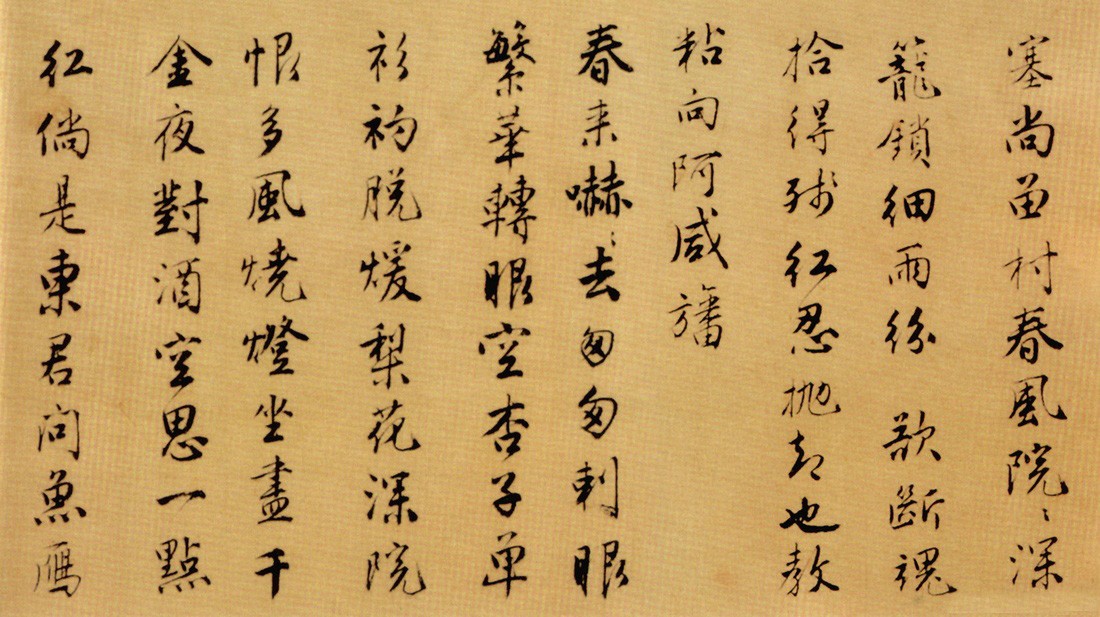 塞尚畄村春風院〻深
籠鎖細雨紛欲斷魂
拾得殘紅忍拋却也教
粘向阿咸旛
春来嚇〻去匆匆刺眼
繁華轉眼空杏子单
衫初脱煖梨花深院
恨多風燒燈坐盡千
金夜對酒空思一點
紅倘是東君问魚鴈